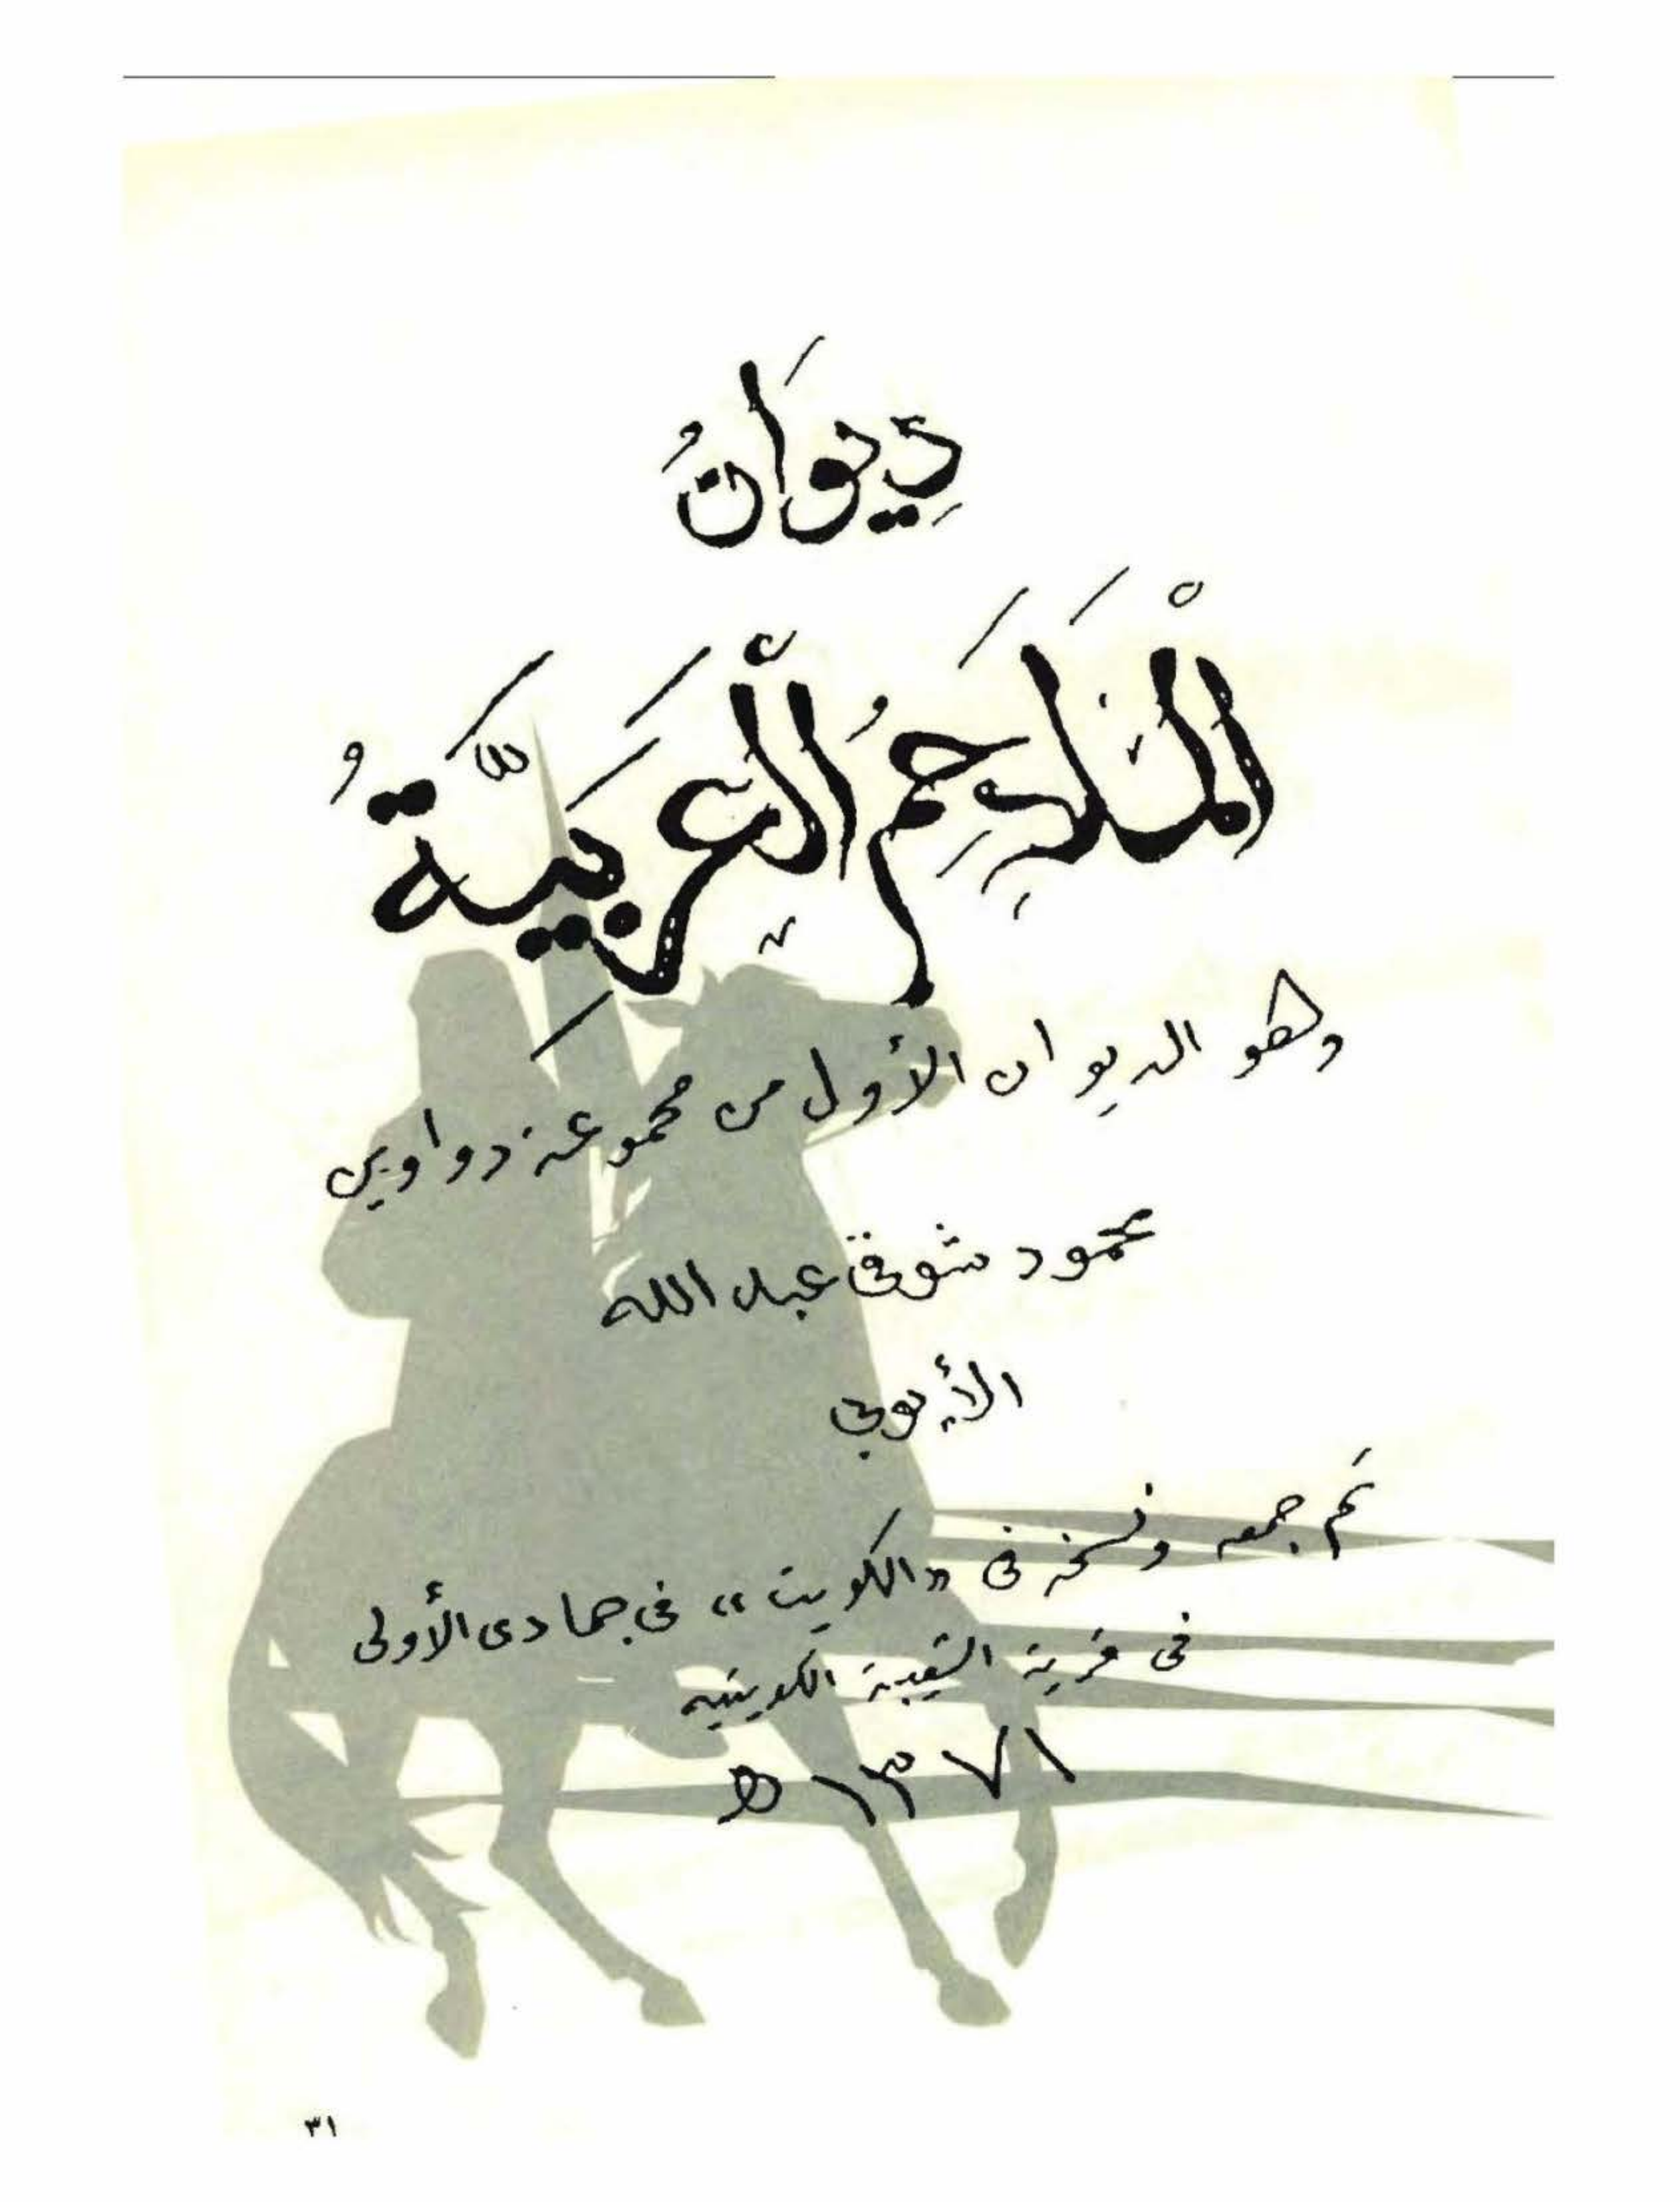 دِيوَانُ
الْمَلَاحِمُ الْعَرَبِيَّةُ
وهو الديوان الأول من مجموعة دواوين
محمود شوقي عبد الله
الأيوبي
تم جمعه ونسخه في «الكويت» في جمادى الأولى
في قرية الشعيبة الكويتيه
١٣٧١ ه
٣١